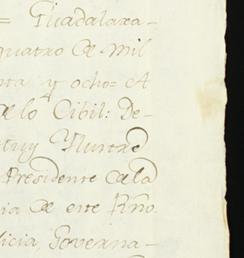 = Guadalaxa-
quatro de mil
nta y ocho= A
de lo Cibil: De-
Presidente de la
ia de este Rño.
licia, Governa-